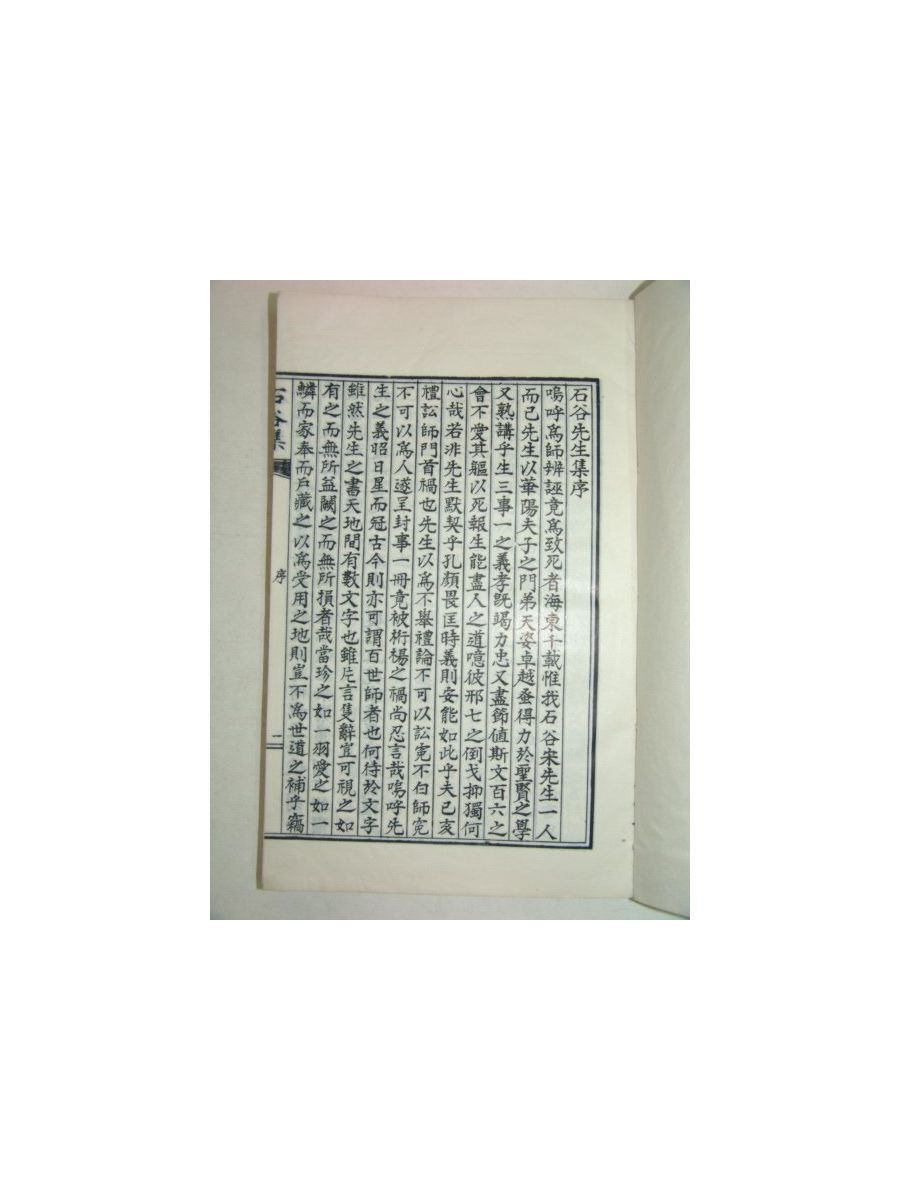 石谷先生集序
嗚呼爲師辨誣竟爲致死者海東千載惟我石谷宋先生一人
而已先生以華陽夫子之門弟天姿卓越蚤得力於聖賢之學
又熟講乎生三事一之義孝旣竭力忠又盡節値斯文百六之
會不愛其軀以死報生能盡人之道噫彼邢七之倒戈抑獨何
心哉若非先生默契乎孔顏畏匡時義則安能如此乎夫己亥
禮訟師門首禍也先生以爲不舉禮論不可以訟寃不白師寃
不可以爲人遂呈封事一冊竟被桁楊之禍尚忍言哉嗚呼先
生之義昭日星而冠古今則亦可謂百世師者也何待於文字
雖然先生之書天地間有數文字也雖片言隻辭豈可視之如
有之而無所益闕之而無所損者哉當珍之如一羽愛之如一
鱗而家奉而戶藏之以爲受用之地則豈不爲世道之補乎竊
石谷集
序
一